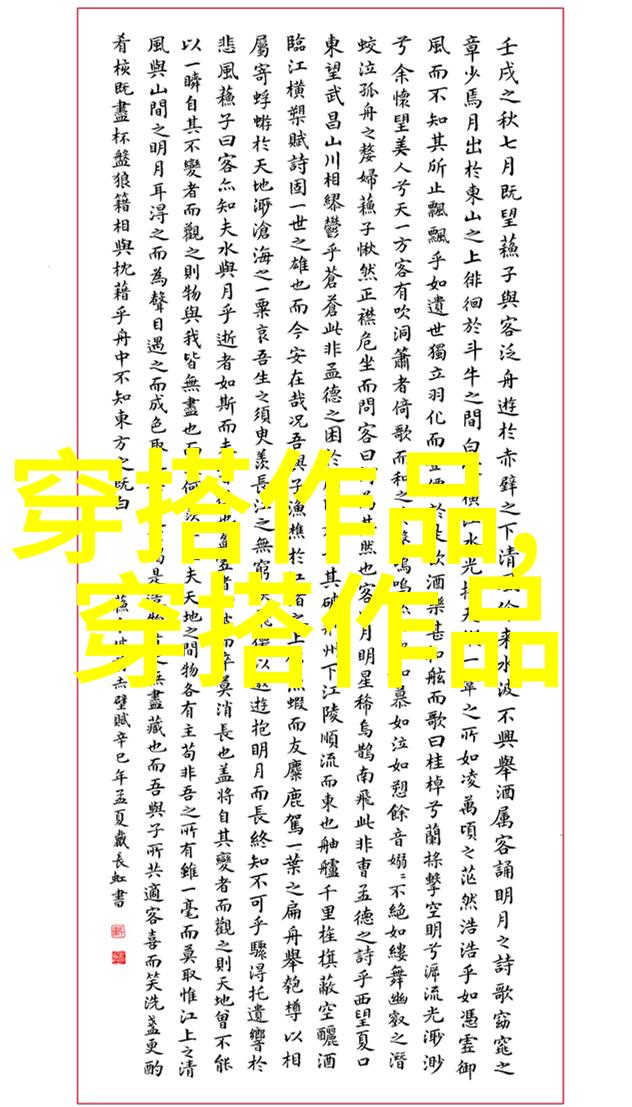 壬戌之秋七月既望蘓子與客泛舟遊於赤壁之下清徐来水波不興舉酒属客誦明月之詩歌窈窕之
章少焉月出於東山之上徘徊於斗牛之間白橫江水光接天一葦之所如凌萬頃之茫然浩浩乎如憑虛御
風而不知其所止飄飄乎如遺世獨立羽化而登僊於是飲酒樂甚扣舷而歌曰桂棹兮蘭槳擊空明兮泝流光渺渺
兮余懷望美人兮天一方客有吹洞簫者倚歌而和之嗚嗚如慕如泣如愬餘音嫋〻不絕如縷舞幽壑之潛
蛟泣孤舟之嫠婦蘓子愀然正襟危坐而問客曰何為其然也客月明星稀烏鵲南飛此非曹孟德之詩乎西望夏口
東望武昌山川相繆鬱乎蒼蒼此非孟德之困於其破州下江陵順流而東也舳艫千里旌旗蔽空釃酒
臨江橫槊賦詩固一世之雄也而今安在哉况吾與子漁樵於江渚之上魚蝦而友麋鹿駕一葉之扁舟舉匏樽以相
屬寄蜉蝣於天地渺滄海之一粟哀吾生之須臾羨長江之無窮僊以遊抱明月而長終知不可乎驟得托遺響於
悲風蘓子曰客亦知夫水與月乎逝者如斯而未往也盈者而卒莫消長也盖将自其變者而觀之則天地曾不能
以一瞬自其不變者而觀之則物與我皆無盡也而何夫天地之間物各有主苟非吾之所有雖一毫而莫取惟江上之清
風與山間之明月耳得之而為聲目遇之而成色取是無盡藏也而吾與子所共適客喜而笑洗盞更酌
肴核既盡杯盤狼籍相與枕藉乎舟中不知東方之既白
赤壁賦辛巳年孟夏戴長虹書
穿搭作品,
穿搭作品